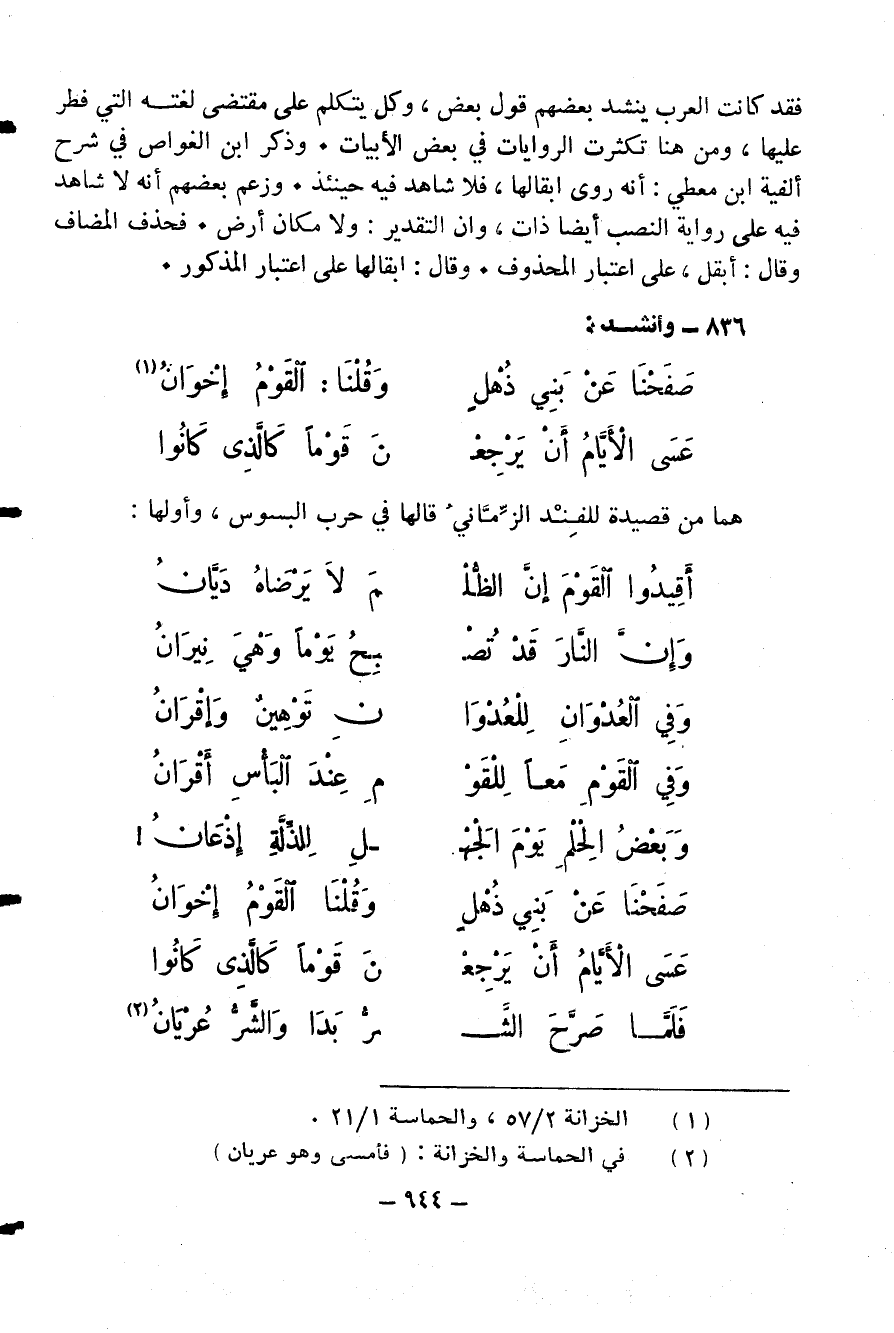 فقد كانت العرب ينشد بعضهم قول بعض ، وكل يتكلم على مقتضى لغتـــه التي فطر
عليها ، ومن هنا تكثرت الروايات في بعض الأبيات • وذكر ابن الغواص في شرح
ألفية ابن معطي : أنه روى ابقالها ، فلا شاهد فيه حينئذ • وزعم بعضهم أنه لا شاهد
فيه على رواية النصب أيضا ذات ، وان التقدير : ولا مكان أرض • فحذف المضاف
وقال : أبقل ، على اعتبار المحذوف • وقال : ابقالها على اعتبار المذكور •
٨٣٦ – وأنشـــد :
صَفَحْنَا عَنْ بَنِي ذُهْلٍ وَقُلْنَا : ٱلقَوْمُ إِخْوَانُ (١)
عَسَى الْأَيَّامُ أَنْ يَرْجِعْـ نَ قَوْماً كَالَّذِى كَانُوا
هما من قصيدة للفِنْد الزِّمَّاني قالها في حرب البسوس ، وأولها :
أَقِيدُوا ٱلقَوْمَ إِنَّ الظُّلْـ مَ لاَ يَرْضَاهُ دَيَّانُ
وَإِنَّ النَّارَ قَدْ تُصْـ بِحُ يَوْماً وَهْيَ نِيرَانُ
وَفِي ٱلعُدْوَانِ لِلْعُدْوَا نِ تَوْهِينٌ وَإِقْرَانُ
وَفِي ٱلقَوْمِ مَعـاً لِلْقَوْ مِ عِنْدَ ٱلبَأْسِ أَقْرَانُ
وَبَعْضُ الحِلْمِ يَوْمَ الجَهْـ ـلِ لِلذِّلَّةِ إِذْعَانُ !
صَفَحْنَا عَنْ بَنِي ذُهْلٍ وَقُلْنَا ٱلقَوْمُ إِخْوَانُ
عَسَى الْأَيَّامُ أَنْ يَرْجِعْـ نَ قَوْماً كَالَّذِى كَانُوا
فَلَمَّــا صَرَّحَ الشَّـــ ـرُّ بَدَا وَالشَّرُّ عُرْيَانُ (٢)
(١) الخزانة ٥٧/٢ ، والحماسة ٢١/١ .
(٢) في الحماسة والخزانة : ( فأمسى وهو عريان )
– ٩٤٤ –